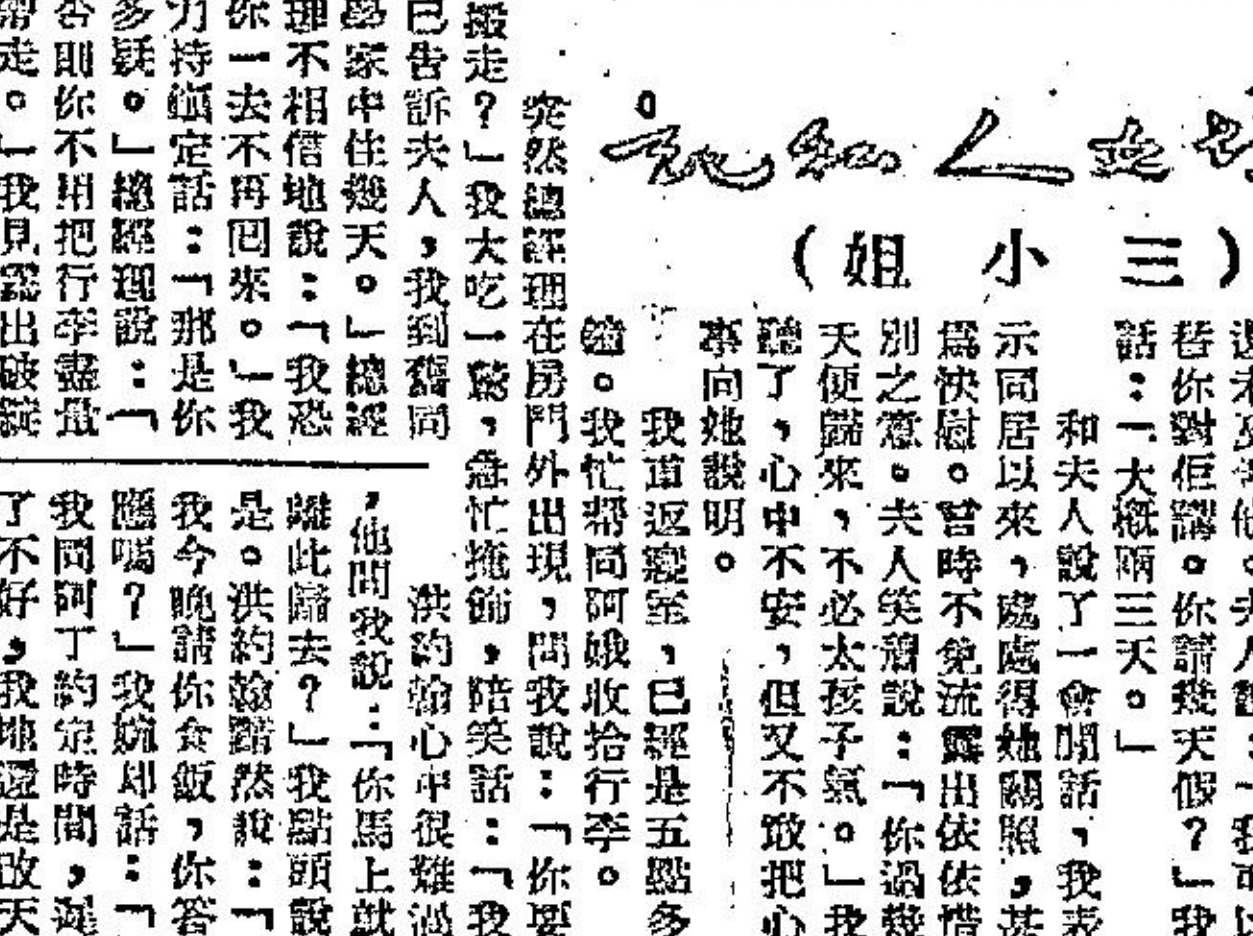 人
(三小姐)
替你對佢講。你請幾天假?」我
話:「大概兩三天。」
和夫人說了一會閒話,我表
示同居以來,處處得她關照,甚
爲快慰。當時不免流露出依依惜
別之意。夫人笑着說:「你過幾
天便歸來,不必太孩子氣。」我
聽了,心中不安,但又不敢把心
事向她說明。
我重返寢室,已經是五點多
鐘。我忙帮同阿娥收拾行李。
突然總經理在房門外出現,問我說:「你要
搬走?」我大吃一驚,急忙掩飾,陪笑話:「我
已告訴夫人,我到舊同
學家中住幾天。」總經
理不相信地說:「我恐
你一去不再回來。」我
力持鎮定話:「那是你
多疑。」總經理說:「
否則你不用把行李盡量
帶走。」我見露出破綻
洪約翰心中很難過
,他問我說:「你馬上就
離此歸去?」我點頭說
是。洪約翰黯然說:「
我今晚請你食飯,你答
應嗎?」我婉却話:「
我同阿丁約定時間,遲
了不好,我地還是改天